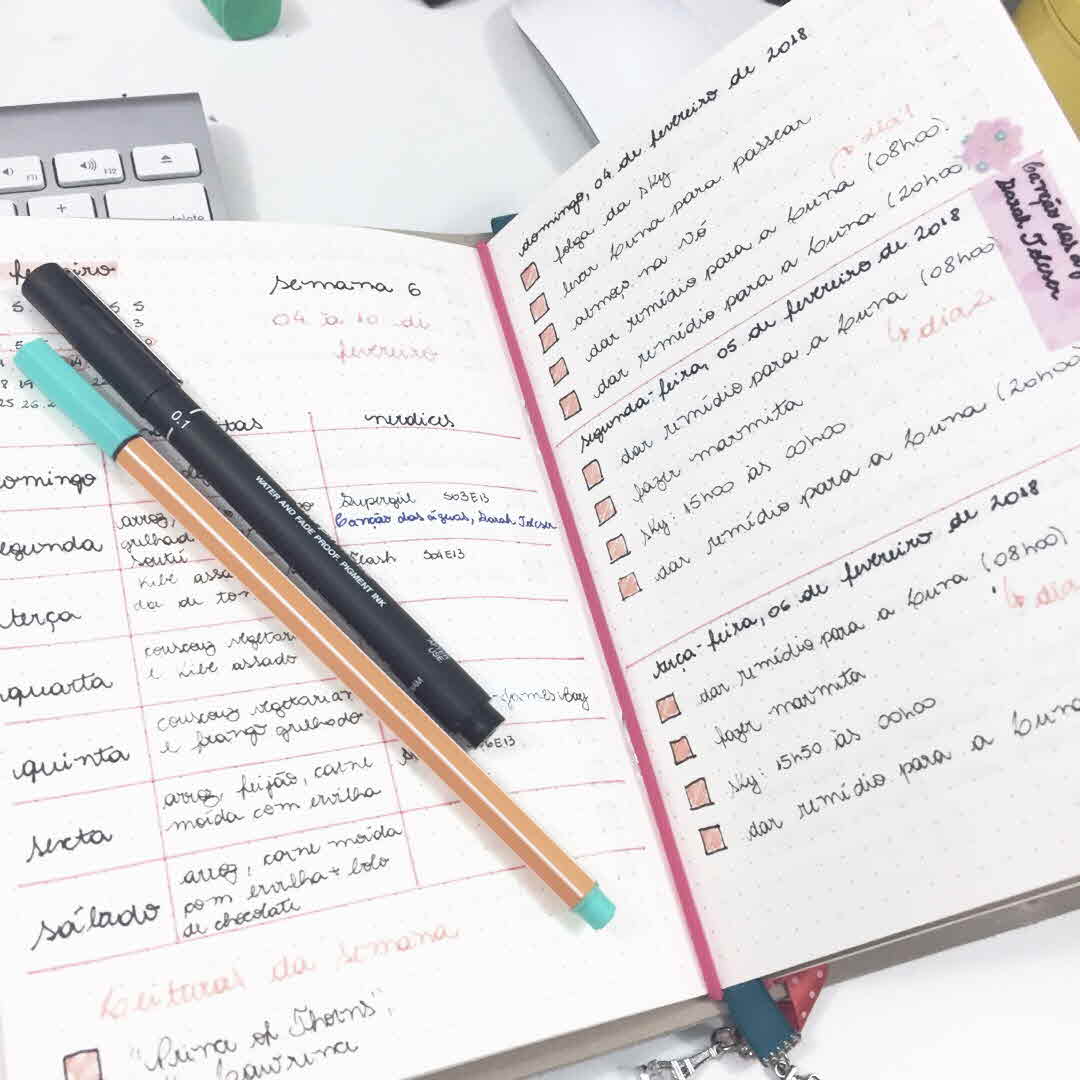 F11
F12
delete
fevereiro
semana 6
04 a 10 de
fevereiro
nerdices
domingo
Supergirl S03E13
segunda
arroz,
Canção das águas, Sarah Tolcser
grelhad
Flash S04E13
terça
kibe assa
da de
quarta
couscouz vegetari
e kibe assado
quinta
couscouz vegetarian
e frango grelhado
James Bay
6E13
sexta
arroz, feijão, carne
moída com ervilha
sábado
arroz, carne moída
com ervilha + bolo
de chocolate
Leituras da semana
"Prince of Thorns",
Lawrence
0.1
WATER AND FADE PROOF PIGMENT INK
domingo, 04 de fevereiro de 2018
folga da sky
levar Luna para passear
almoço na vó
dia 1
dar remédio para a Luna (08h00)
dar remédio para a Luna (20h00)
segunda-feira, 05 de fevereiro de 2018
dar remédio para a Luna (08h00)
↳ dia 2
fazer marmita
sky: 15h00 às 00h00
dar remédio para a Luna (20h00)
terça-feira, 06 de fevereiro de 2018
dar remédio para a Luna (08h00)
↳ dia
fazer marmita
sky: 15h50 às 00h00
dar remédio para a Luna
Canção das ág
Sarah Tolcser